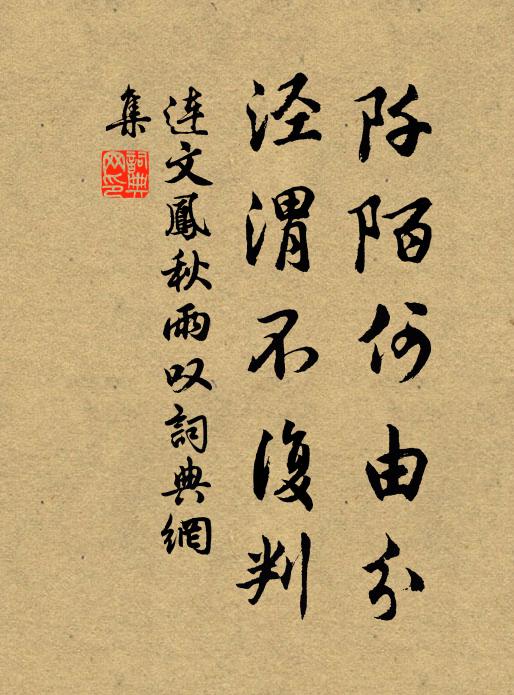 阡陌何由分
泾渭不復判
连文鳳秋雨叹詞典網
集
詞典網印